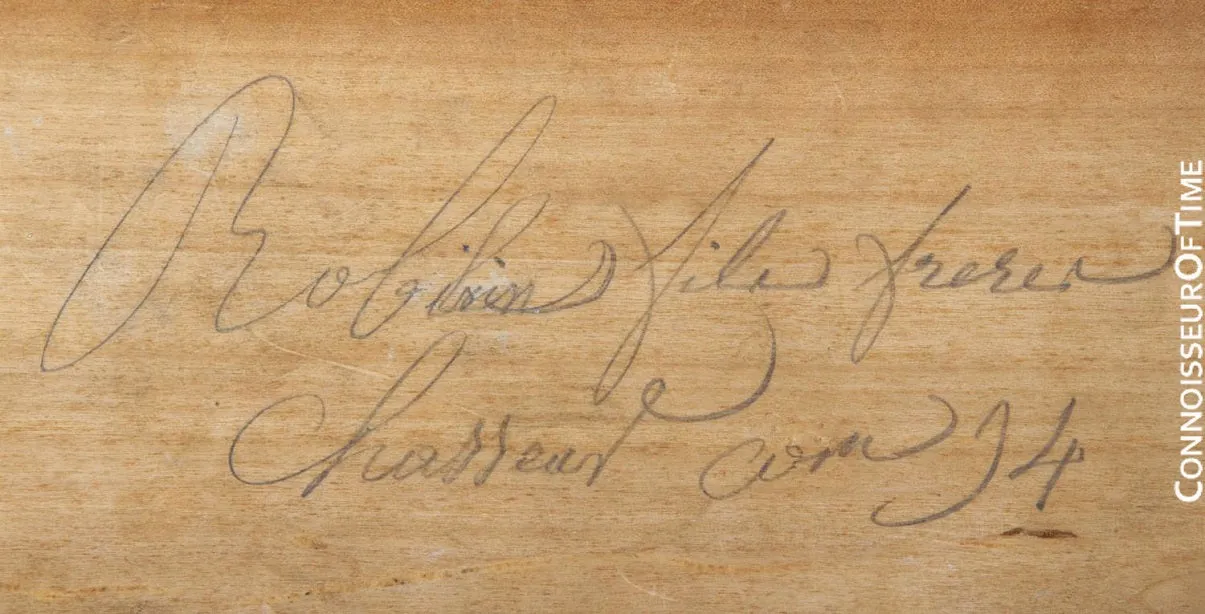 Robin fils freres
Chasseur Com 94
CONNOISSEUROFTIME